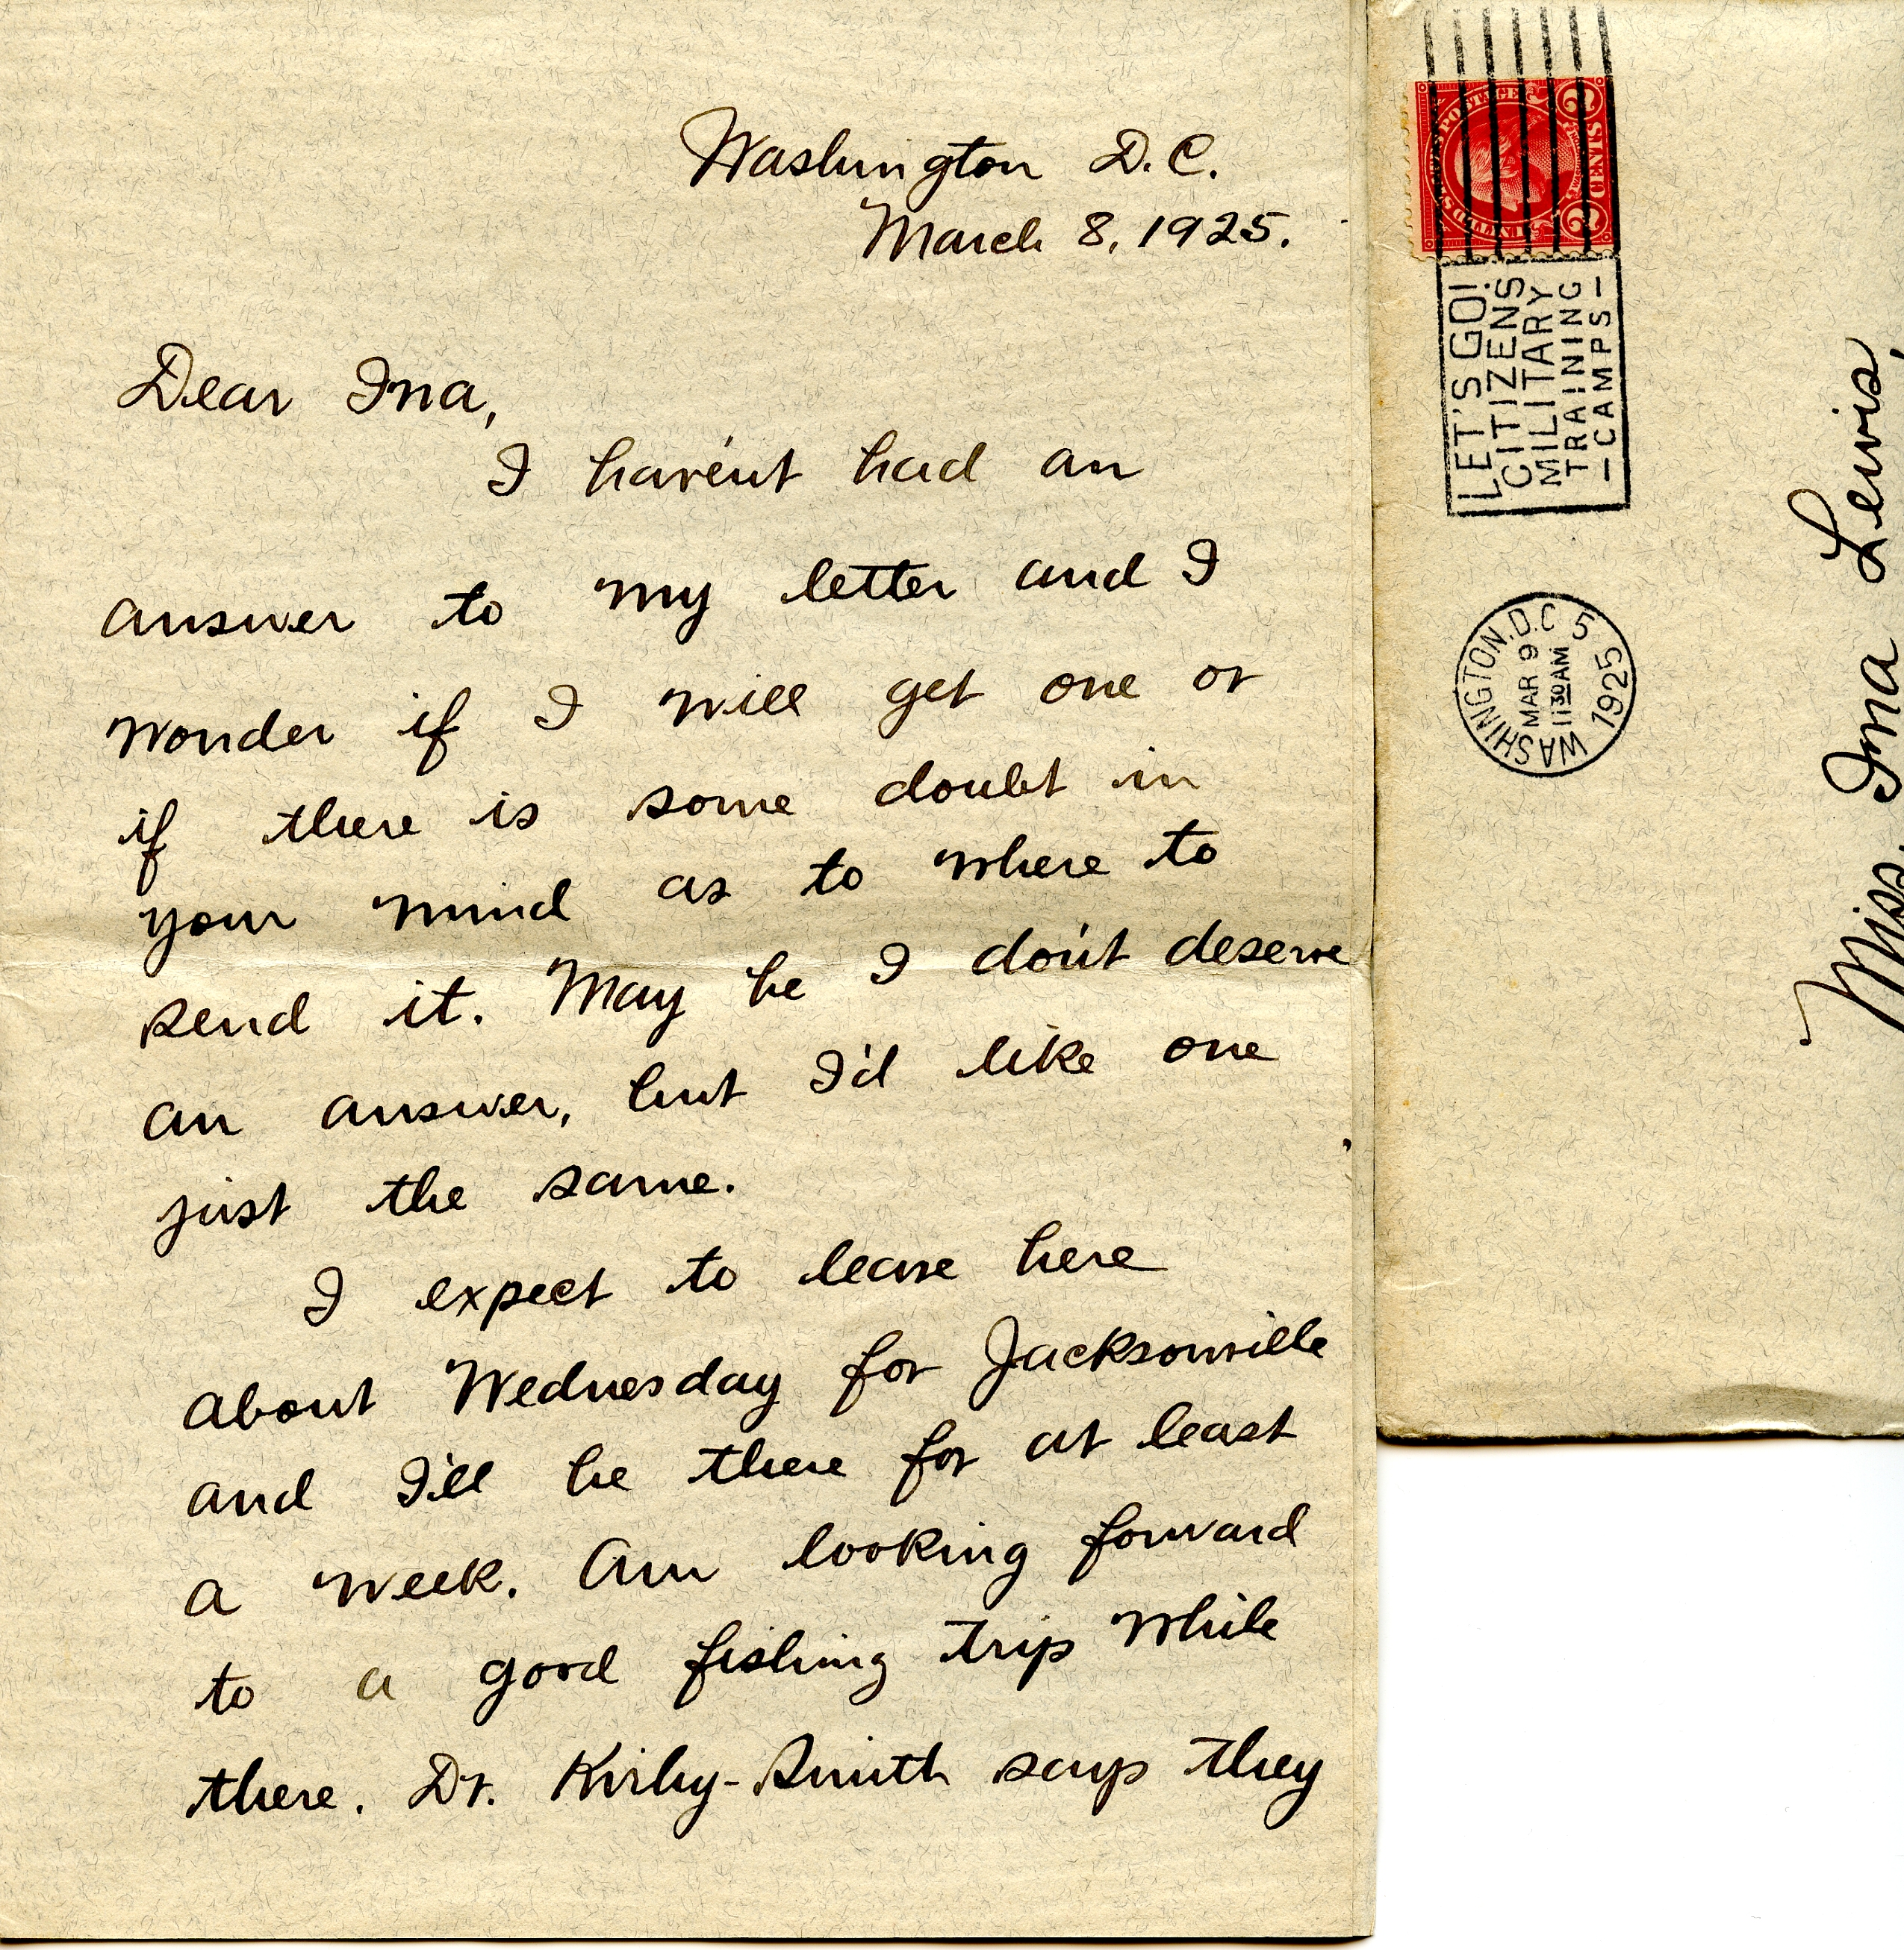 Washington D.C.
March 8, 1925.
Dear Ina,
I have'nt had an
answer to my letter and I
wonder if I will get one or
if there is some doubt in
your mind as to where to
send it. May be I do'nt deserve
an answer, but I'd like one
just the same.
I expect to leave here
about Wednesday for Jacksonville
and I'll be there for at least
a week. Am looking forward
to a good fishing trip while
there. Dr. Kirby-Smith says they
UNITED STATES POSTAGE
2 CENTS 2
LET'S GO!
CITIZENS
MILITARY
TRAINING
-CAMPS-
WASHINGTON, D.C. 5
MAR 9
11 30 AM
1925
Miss. Ina Lewis,